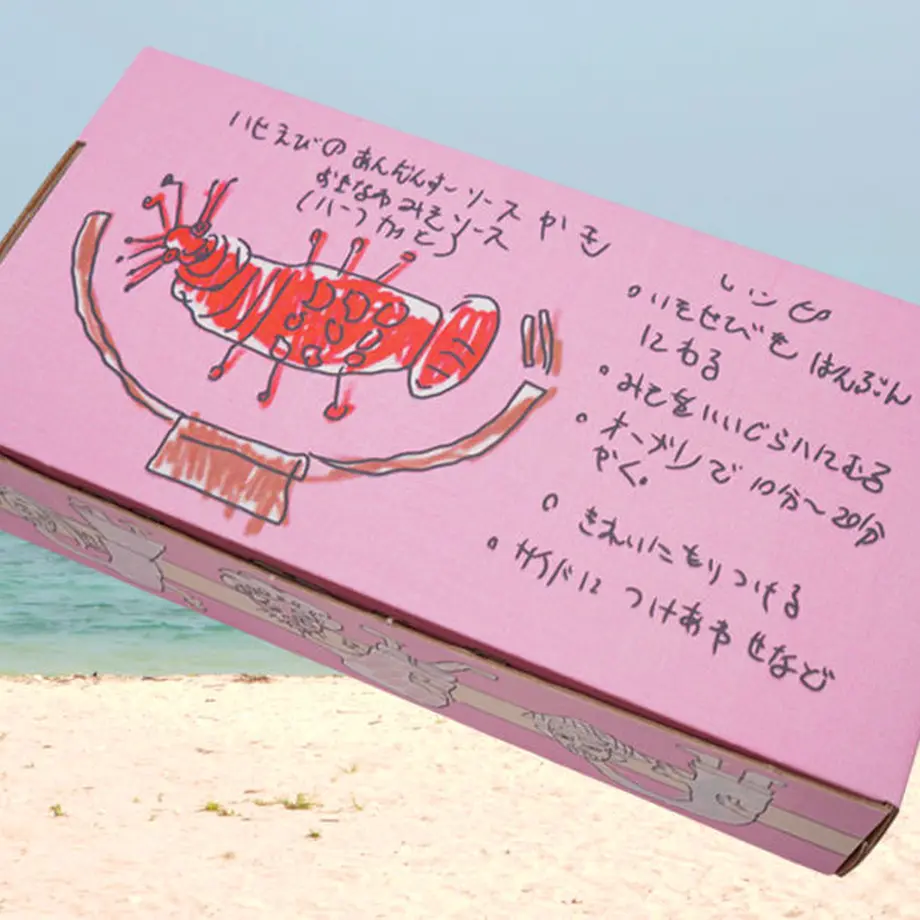 いせえびの あんだんすーソース かき
おきなわ みそソース
(ハーフカット)
レシピ
・いせえびを はんぶん
にわる
・みそをいいぐらいにぬる
・オーブンで 10分〜20分
やく。
・きれいにもりつける
・サイドに つけあわせなど